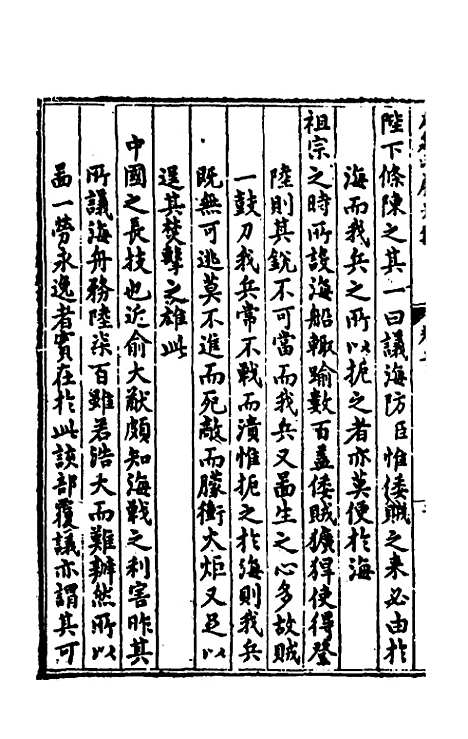 陛下條陳之其一曰議海防臣惟倭賊之來必由於
海而我兵之所以扼之者亦莫便於海
祖宗之時所設海船輒踰數百蓋倭賊獷猂使得登
陸則其銳不可當而我兵又啚生之心多故賊
一鼓刀我兵常不戰而潰惟扼之於海則我兵
既無可逃莫不進而死敵而朦衝大炬又足以
逞其焚擊之雄此
中國之長技也近俞大猷頗知海戰之利害昨其
所議海舟務陸柒百雖若浩大而難辦然所以
啚一勞永逸者實在於此該部覆議亦謂其可